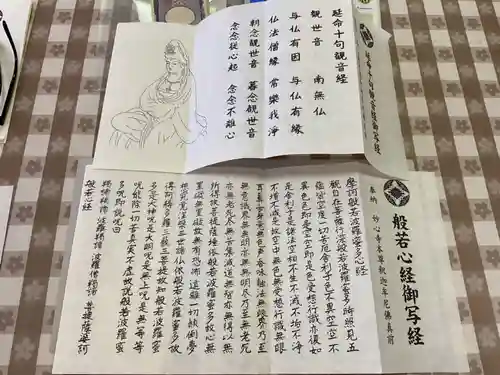 延命十句観音経御写経
延命十句觀音経
觀世音 南無仏
与仏有因 与仏有縁
仏法僧縁 常樂我浄
朝念觀世音 暮念觀世音
念念從心起 念念不離心
奉納 妙心寺本尊釈迦牟尼佛真前
般若心経御写経
摩訶般若波羅蜜多心経
觀自在菩薩行深般若波羅蜜多時照見五
蘊皆空度一切苦厄舎利子色不異空空不
異色色即是空空即是色受想行識亦復如
是舎利子是諸法空相不生不滅不垢不浄
不増不減是故空中無色無受想行識無眼
耳鼻舌身意無色声香味触法無眼界乃至
無意識界無無明亦無無明尽乃至無老死
亦無老死尽無苦集滅道無智亦無得以無
所得故菩提薩埵依般若波羅蜜多故心無
罣礙無罣礙故無有恐怖遠離一切顛倒夢
想究竟涅槃三世諸仏依般若波羅蜜多故
得阿耨多羅三藐三菩提故知般若波羅蜜
多是大神呪是大明呪是無上呪是無等等
呪能除一切苦真実不虚故説般若波羅蜜
多呪即説呪曰
羯諦羯諦 波羅羯諦 波羅僧羯諦 菩提薩婆訶
般若心経